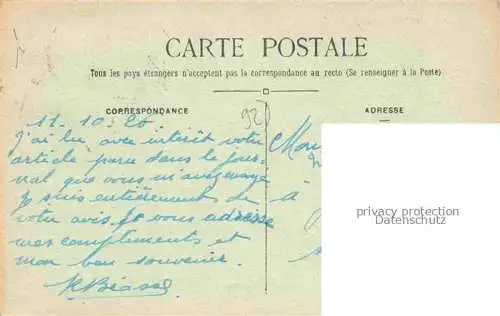 CARTE POSTALE
Tous les pays étrangers n'acceptent pas la correspondance au recto (Se renseigner à la Poste)
CORRESPONDANCE
ADRESSE
92
11.10.26
J'ai lu avec intérêt votre
article paru dans le jour-
nal que vous m'avez envoyé
Je suis entièrement de
votre avis. Je vous adresse
mes compliments et
mon bon souvenir.
à
privacy protection
Datenschutz